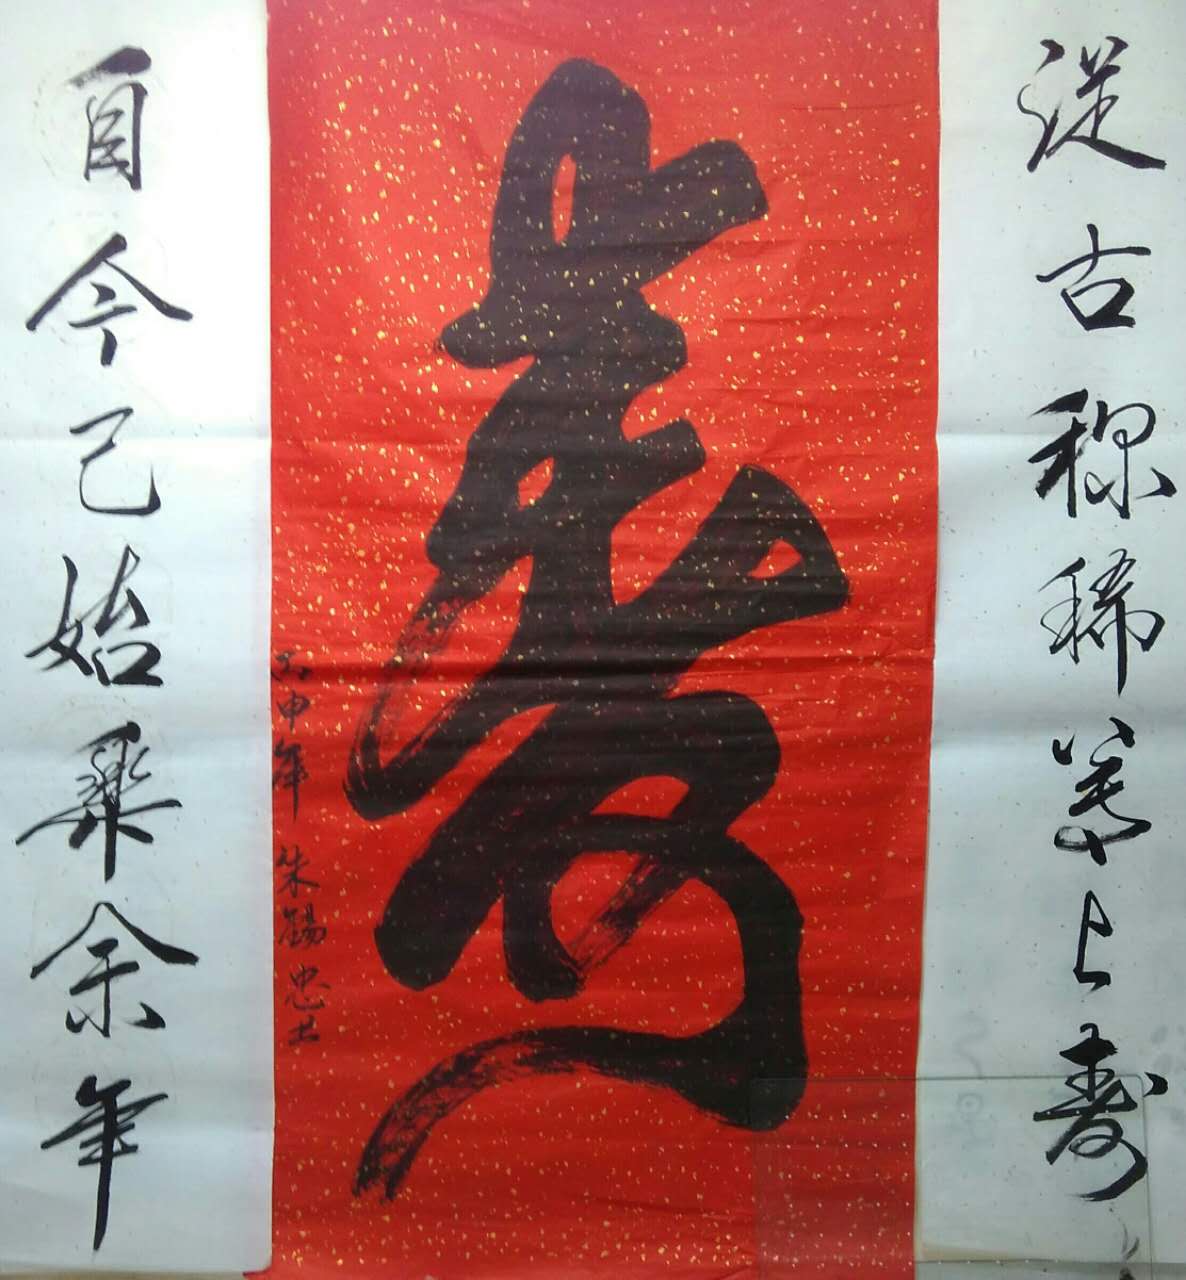 從古称稀尊上寿
壽
丙申年 朱錫忠书
自今已始樂余年